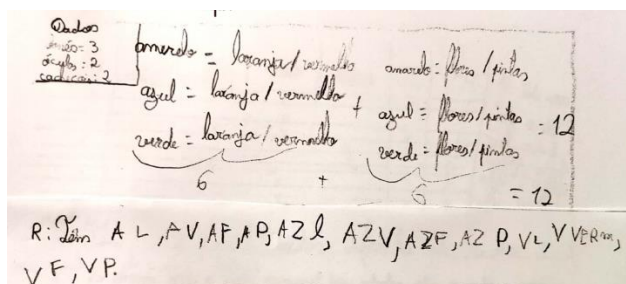 Dados
anões: 3
óculos: 2
cachecóis: 2
amarelo = laranja/vermelho
azul = laranja/vermelho
verde = laranja/vermelho
6
+
amarelo = flores/pintas
azul = flores/pintas = 12
verde = flores/pintas
6 + 6 = 12
R: Têm AL, AV, AF, AP, AZl, AZV, AZF, AZP, VL, VVERm,
VF, VP.